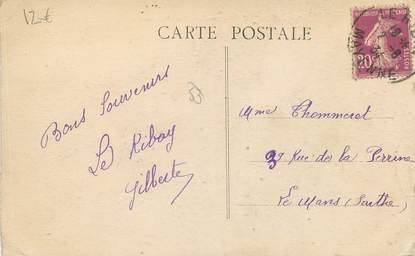 12-€
CARTE POSTALE
20
53
Bons Souvenirs
Le Ribay
Gilberte
Mme Thommeret
37 Rue de la Perrine
Le Mans (Sarthe)